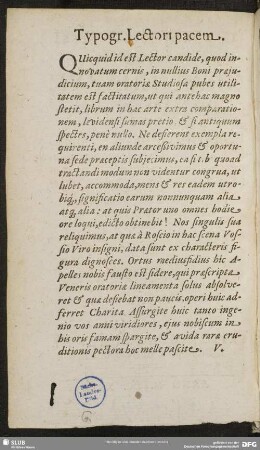 Typogr. Lectori pacem.
QUicquid id est Lector candide, quod in-
novatum cernis, in nullius Boni præju-
dicium, tuam oratoriæ Studiosa pubes utili-
tatem est factitatum, ut qui antehac magno
stetit, librum in hac arte extra comparatio-
nem, levidensi jamas pretio & si antiquum
spectes, penè nullo. Ne desierent exempla re-
quirenti, en aliunde arcessivimus & oportu-
na sede præceptis subjecimus, ea si t. b quoad
tractandi modum non videntur congrua, ut
lubet, accommoda, mens & res eadem utro-
biq; significatio earum nonnunquam alia
atq; alia: at quis Prator uno omnes hodie
ore loqui, edicto obtinebit? Nos singula sua
reliquimus, at quæ à Roscio in hac scena Vos-
sio Viro insigni, data sunt ex characteris fi-
gura dignosces. Ortus mediusfidius hic A-
pelles nobis fausto est sidere, qui præscripta
Veneris oratoriæ lineamenta solus absolve-
ret & qua deessebat non paucis, operi huic ad-
ferret Charita. Assurgite huic tanto inge-
nio vos anni viridiores, ejus nobiscum in
bis oris famam spargite, & avida rara eru-
ditionis pectora hoc melle pascite. V.
SLUB
DFG